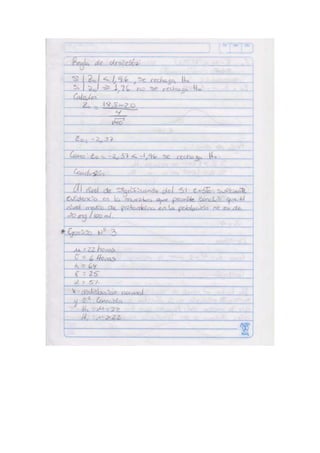 Regla de decisión:
Si |Zc| < 1,96, se rechaza Ho
Si |Zc| ≥ 1,96 no se rechaza Ho
Calculo
Zc = 18,5-20
4
√40
Zc = -2,37
Como Zc = -2,37 < -1,96 se rechaza Ho.
Conclusión
Al nivel de significancia del 5% existe suficiente
evidencia en la muestra que permite concluir que el
nivel medio de protrombina en la población no es de
20 mg/100 ml.
* Ejercicio N° 3
μ = 22 horas
σ = 6 horas
n = 64
x̄ = 25
α = 5%
X = distribución normal
y σ² conocida
Ho: μ = 22
H1: μ > 22